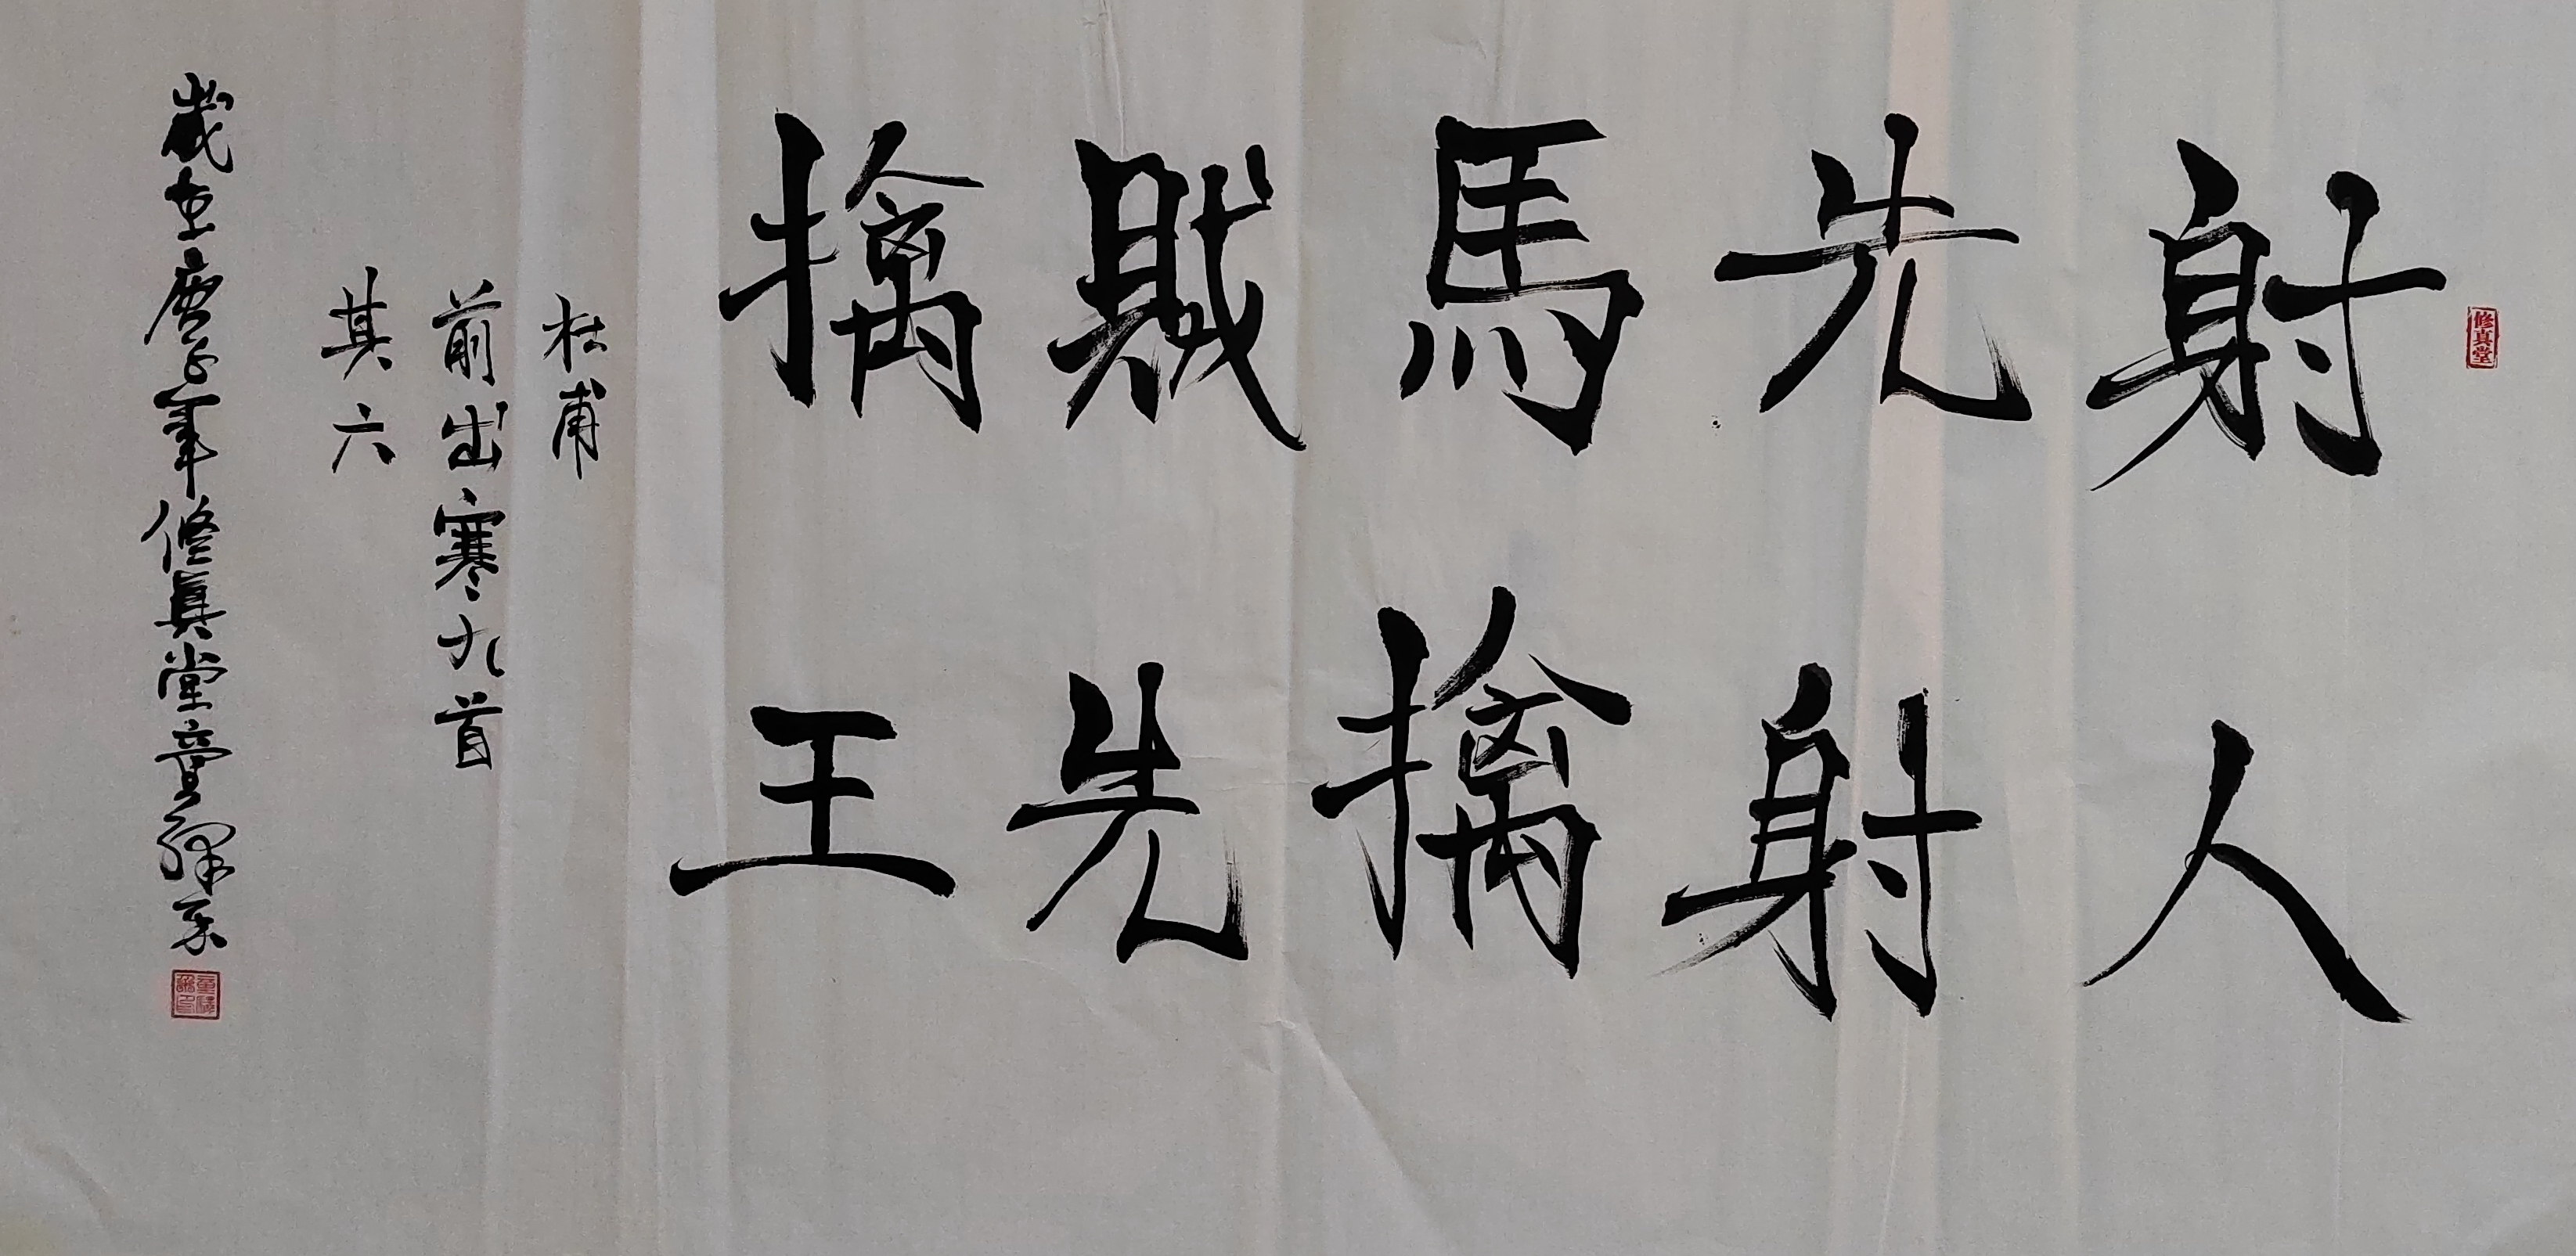 修真堂
射人
先射
馬擒
賊先
擒王
杜甫
前出寒九首
其六
歲在庚子年修真堂童繹書